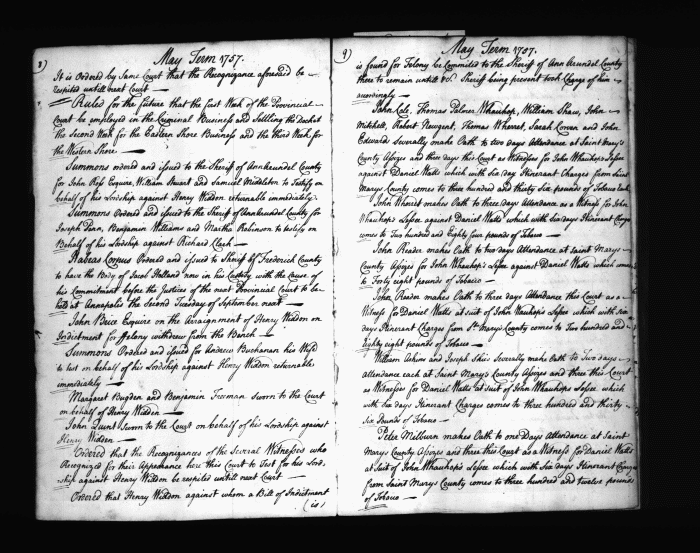 8)
May Term 1757.
It is Ordered by Same Court that the Recognizance aforesaid be
respited untill next Court
Ruled for the future that the first Week of the Provincial
Court be employed in the Criminal Business and Settling the Docket
the Second Week for the Eastern Shore Business and the third Week for
the Western Shore
Summons ordered and issued to the Sheriff of Annarundel County
for John Ross Esquire, William Stuart and Samuel Middleton to Testify on
behalf of his Lordship against Henry Widdon returnable immediately
Summons Ordered and issued to the Sheriff of Annarundel County for
Joseph Benjamin Williams and Martha Robinson to testify on
Behalf of his Lordship against Richard
Habeas Corpus Ordered and issued to Sheriff of Frederick County
to have the Body of Jacob Holland now in his Custody with the Cause of
his Commitment before the Justices of the next Provincial Court to be
held at Annapolis the Second Tuesday of September next
John Brice Esquire on the Arraignment of Henry Widdon on
Indictment for Felony withdrew from the Bench
Summons Ordered and issued for Andrew Buchanan his Wife
to test on behalf of his Lordship against Henry Widdon returnable
immediately
Margaret Bugden and Benjamin Freeman sworn to the Court
on behalf of Henry Widden
John sworn to the Court on behalf of his Lordship against
Henry Widden
Ordered that the Recognizances of the Several Witnesses who
Recognized for their Appearance here this Court to Test for his Lord-
ship against Henry Widdon be respited untill next Court
Ordered that Henry Widdon against whom a Bill of Indictment
(is)
9)
May Term 1757.
is found for Felony be Commited to the Sheriff of Ann Arundel County
there to remain untill &c. Sheriff being present took Charge of him
accordingly
John Cole, Thomas Palmer Whauhop, William Shaw, John
Mitchell, Robert Newgent, Thomas Wherret, Sarah and John
Edward Severally make Oath to two days Attendance at Saint Mary's
County Assizes and three days this Court as Witnesses for John Whauhops Lessee
against Daniel Watts which with six day Itinerant Charges from Saint
Marys County comes to three hundred and thirty Six pounds of Tobacco Each
John Wherret makes Oath to three days Attendance as a Witness for John
Whauhops Lessee against Daniel Watts which with six days Itinerant Charges
comes to Two hundred and Eighty four pounds of Tobacco
John Reader makes Oath to two days Attendance at Saint Marys
County Assizes for John Whauhops Lessee against Daniel Watts which comes
to Forty eight pounds of Tobacco
John Reader makes Oath to three days Attendance this Court as a
Witness for Daniel Watts at suit of John Whauhops Lessee which with six
days Itinerant Charges from St. Mary's County comes to Two hundred and
Eighty eight pounds of Tobacco
William Asken and Joseph Severally make Oath to Two days
attendance each at Saint Mary's County Assizes and three this Court
as Witnesses for Daniel Watts at suit of John Whauhops Lessee which
with Six days Itinerant Charges comes to three hundred and thirty
Six Pounds of Tobacco
Peter Milburn makes Oath to one Days Attendance at Saint
Marys County Assizes and three this Court as a Witness for Daniel Watts
at suit of John Whauhops Lessee which with Six days Itinerant Charges
from Saint Marys County comes to three hundred and twelve pounds
of Tobacco